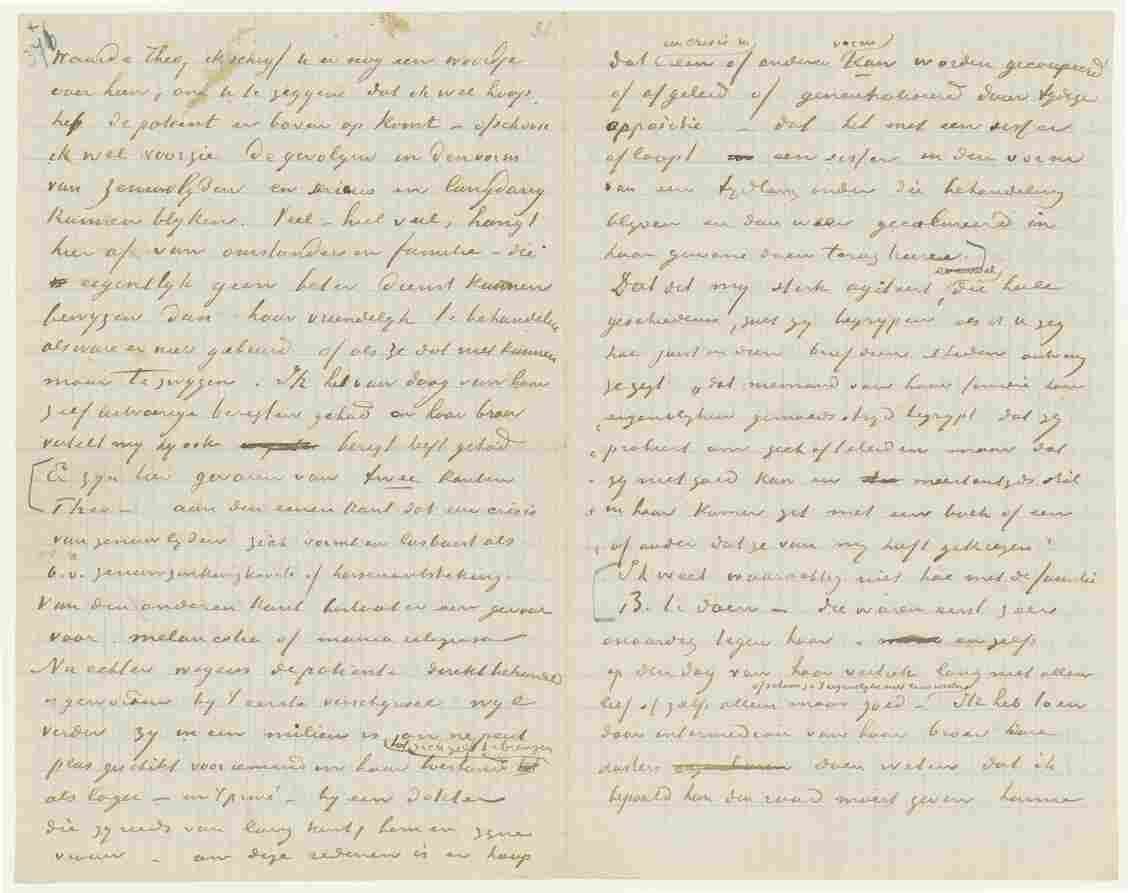 Waarde Theo, ik schrijf U er nog een woordje
over heen, om U te zeggen dat ik wel hoop
de patient er boven op komt – ofschoon
ik wel voorzie de gevolgen in den vorm
van zenuwlijden en serieus en langdurig
kunnen blijken. Veel – heel veel, hangt
hier af van omstanders en familie – die
eigentlijk geen beter dienst kunnen
bewijzen dan haar vriendelijk te behandelen
alsware er niets gebeurd of als ze dat niet kunnen
maar te zwijgen. Ik heb van daag van haar
zelf uitvoerige berigten gehad en haar broer
vertelt mij zij ook berigt heeft gehad
Er zijn hier gevaren van twee kanten
Theo – aan den eenen kant dat een crisis
van zenuwlijden zich vormt en losbarst als
b.v. zenuwzinkingkoorts of hersenontsteking.
Van den anderen kant bestaat er een gevaar
voor melancolie of mania religiosa
Nu echter wegens de patiente direkt behandeld
is geworden bij 't eerste verschijnsel wijl
verder zij in een milieu is, on ne peut
tot zich zelf te brengen
plus geschikt voor iemand om haar
als logee – en 't privé – bij een dokter
die zij reeds van lang kent, hem en zijne
vrouw – om deze redenen is er hoop
een crisis in vorm
dat een of andere kan worden gecoupeerd
of afgeleid of geneutraliseerd door tijdige
oppositie – dat het met een sisser
afloopt een sisser in den vorm
van een tijdlang onder die behandeling
blijven en dan weer gecalmeerd in
haar gewone doen terug keeren.
Dat dit mij sterk agiteert, die heele
geschiedenis, zult gij begrijpen als ik U zeg
hoe juist in den brief dien ik heden ontving
ze zegt „dat niemand van haar familie haar
eigenlijken gemoedstoestand begrijpt dat zij
probeert om zich af te leiden maar dat
zij niet goed kan en meerendeels stil
in haar kamer zit met een boek of een
of ander dat ze van mij heeft gekregen"
Ik weet waarachtig niet hoe met de familie
B. te doen – die waren eerst zeer
onaardig tegen haar. en zelfs
op den dag van haar vertrek lang niet alleen
lief of zelfs alleen maar goed – Ik heb toen
door intermediair van haar broer hare
zusters doen weten dat ik
bepaald hun den raad moest geven hunne